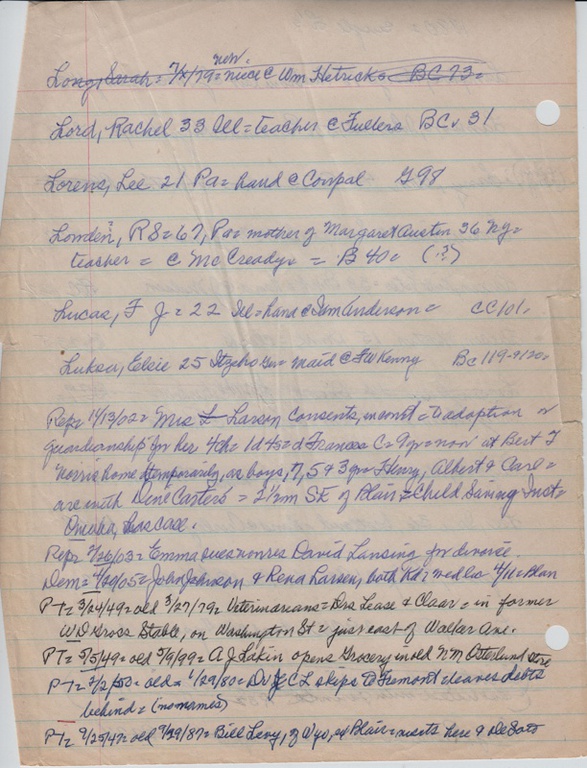 new.
Long, Sarah = 7/x/79 = niece c Wm Hetrick = BC 73 =
Lord, Rachel 33 Ill = teacher c Fullers BCv 31
Lorens, Lee 21 Pa = hand c Compal G98
Lomden?, R S = 67, Pa = mother of Margaret Austin 36 Ny =
teacher = c McCreadys = B 40 = (?)
Lucas, F J = 22 Ill = hand c Sam Anderson = CC 101.
Luksa, Elsie 25 Ger = maid c F W Kenny Bc 119-9120 =
Rep = 11/13/02 = Mrs L Larsen consents, in court = to adoption or
guardianship for her 4ch = 1d 4s = d Frances C = 9 yr = now at Bert T
Norris home temporarily, as boys, 7, 5 & 3 yr = Henry, Albert & Carl =
are with Dine Casters = 2 1/2 m SE of Blair = Child Saving Inst =
Omaha, has case.
Rep = 2/26/03 = Emma sues nonres David Lansing for divorce.
Dem = 4/20/05 = John Johnson & Rena Larsen, both Kd; wed lic 4/11 = Blair
PT = 3/24/49 = old 3/27/79 = Veterinarians = Drs Lease & Claar = in former
W D Gross Stable, on Washington St = just east of Walker Ave.
PT = 5/5/49 = old 5/9/99 = A J Lakin opens Grocery in old N M Osterlund store
PT = 2/2/50 = old = 1/29/80 = Dr J C L skips to Fremont = leaves debts
behind = (no names)
PT = 9/25/47 = old 9/29/87 = Bill Levy, of Wyo, ex Blair = visits here & DeSoto